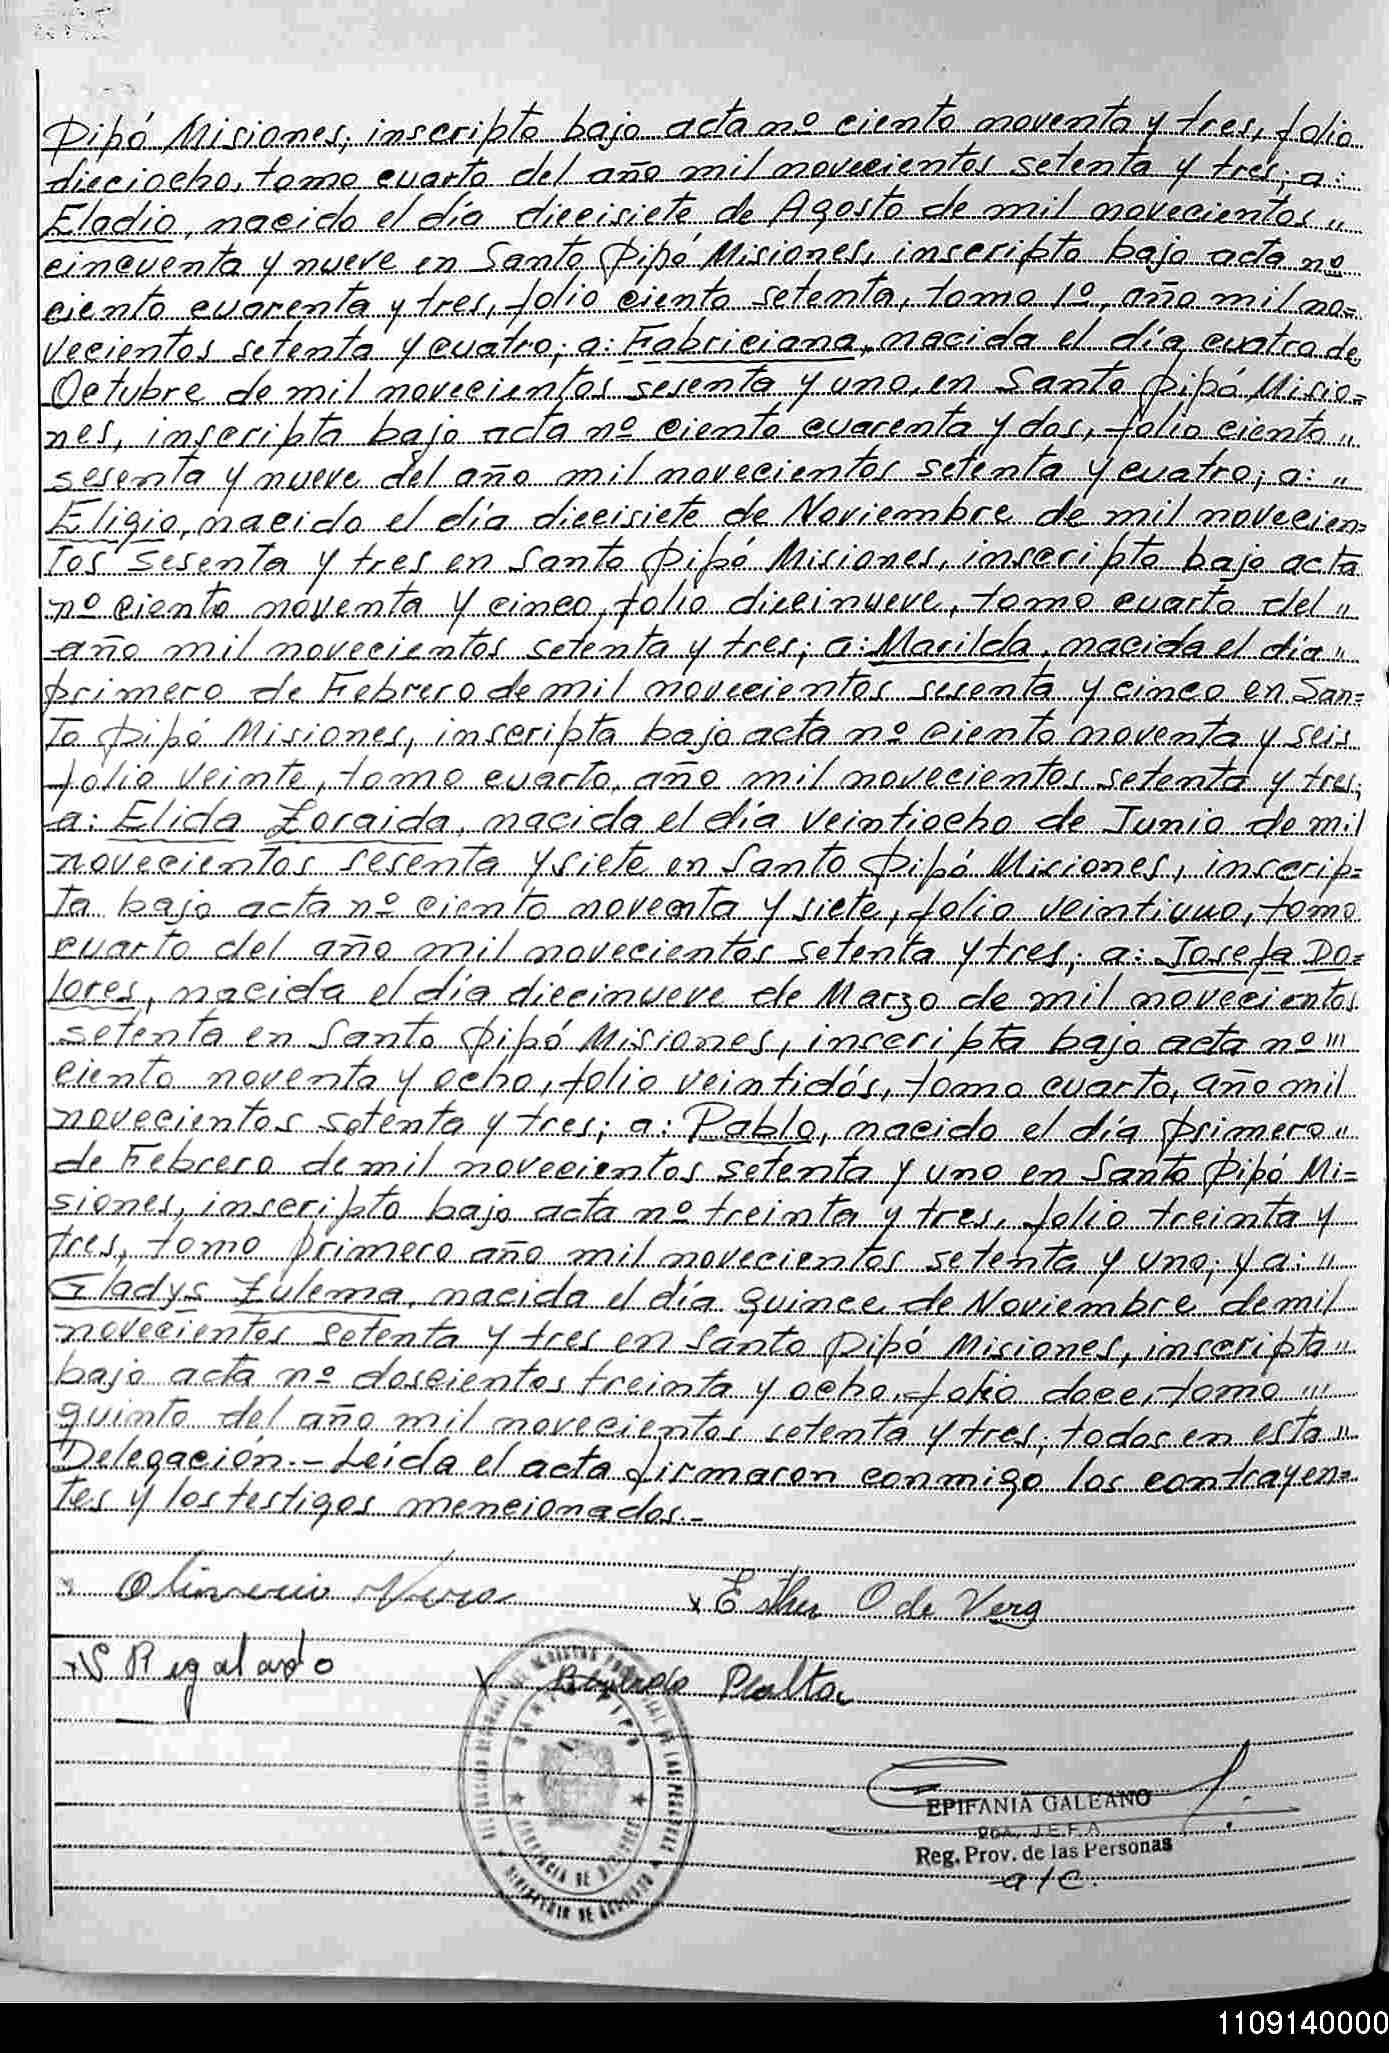 Pipó Misiones, inscripto bajo acta nº ciento noventa y tres, folio
dieciocho, tomo cuarto del año mil novecientos setenta y tres; a:
Eladio, nacido el día diecisiete de Agosto de mil novecientos "
cincuenta y nueve en Santo Pipó Misiones, inscripto bajo acta nº
ciento cuarenta y tres, folio ciento setenta, tomo 1º, año mil no=
vecientos setenta y cuatro; a: Fabriciana, nacida el día cuatro de
Octubre de mil novecientos sesenta y uno, en Santo Pipó Misio=
nes, inscripta bajo acta nº ciento cuarenta y dos, folio ciento "
sesenta y nueve del año mil novecientos setenta y cuatro; a: "
Eligio, nacido el día diecisiete de Noviembre de mil novecien=
tos sesenta y tres en Santo Pipó Misiones, inscripto bajo acta
nº ciento noventa y cinco, folio diecinueve, tomo cuarto del "
año mil novecientos setenta y tres; a: Marilda, nacida el día "
primero de Febrero de mil novecientos sesenta y cinco en San=
to Pipó Misiones, inscripta bajo acta nº ciento noventa y seis
folio veinte, tomo cuarto, año mil novecientos setenta y tres;
a: Elida Zoraida, nacida el día veintiocho de Junio de mil
novecientos sesenta y siete en Santo Pipó Misiones, inscrip=
ta bajo acta nº ciento noventa y siete, folio veintiuno, tomo
cuarto del año mil novecientos setenta y tres; a: Josefa Do=
lores, nacida el día diecinueve de Marzo de mil novecientos
setenta en Santo Pipó Misiones, inscripta bajo acta nº "'
ciento noventa y ocho, folio veintidós, tomo cuarto, año mil
novecientos setenta y tres; a: Pablo, nacido el día primero "
de Febrero de mil novecientos setenta y uno en Santo Pipó Mi=
siones, inscripto bajo acta nº treinta y tres, folio treinta y
tres, tomo primero año mil novecientos setenta y uno; y a: "
Gladys Zulema, nacida el día quince de Noviembre de mil
novecientos setenta y tres en Santo Pipó Misiones, inscripta "
bajo acta nº doscientos treinta y ocho, folio doce, tomo "'
quinto del año mil novecientos setenta y tres; todos en esta "
Delegación.- Leída el acta firmaron conmigo los contrayen=
tes y los testigos mencionados.-
x Vera x Esther O de Vera
x Regalado x Peralta
SANTO PIPO
PROVINCIA DE MISIONES
EPIFANIA GALEANO
J.E.F.A
Reg. Prov. de las Personas
a/c.
1109140000